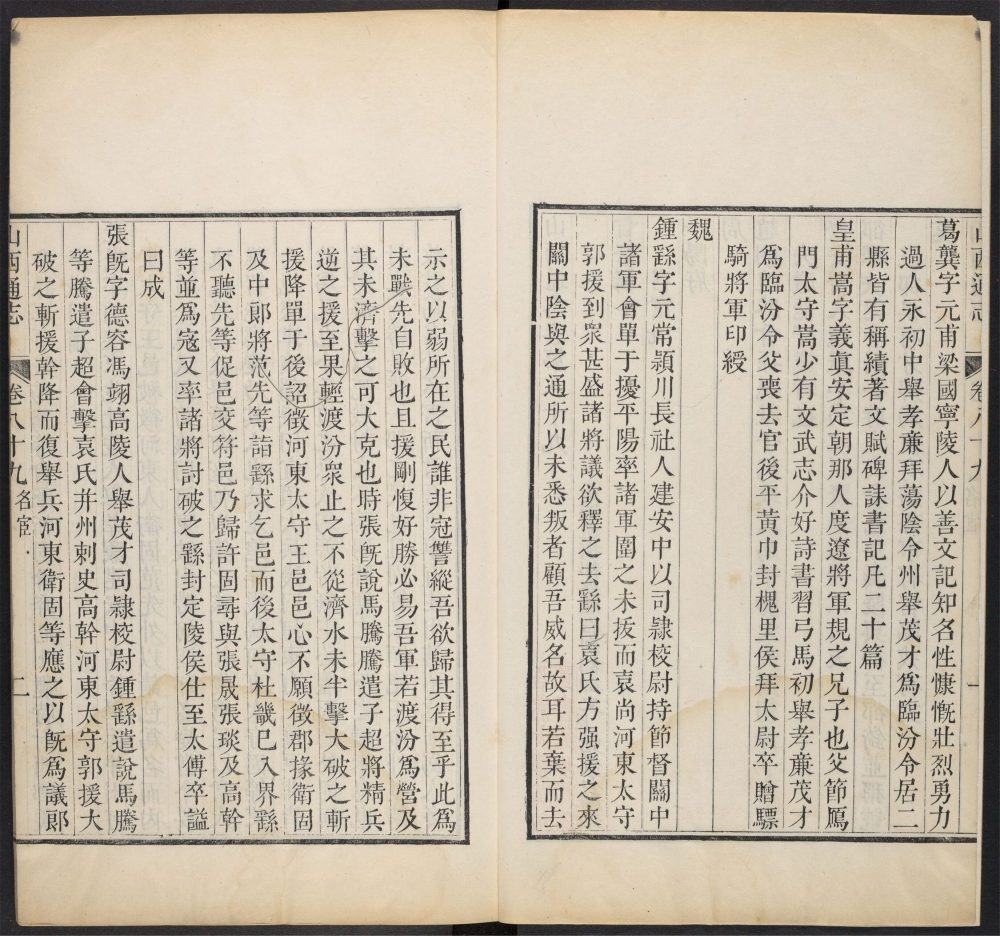 山西通志 卷八十九 一
葛龔字元甫梁國寧陵人以善文記知名性慷慨壯烈勇力
過人永初中舉孝廉拜蕩陰令州舉茂才爲臨汾令居二
縣皆有稱績著文賦碑誄書記凡二十篇
皇甫嵩字義真安定朝那人度遼將軍規之兄子也父節鴈
門太守嵩少有文武志介好詩書習弓馬初舉孝廉茂才
爲臨汾令父喪去官後平黃巾封槐里侯拜太尉卒贈驃
騎將軍印綬
魏
鍾繇字元常潁川長社人建安中以司隸校尉持節督關中
諸軍會單于擾平陽率諸軍圍之未拔而袁尚河東太守
郭援到衆甚盛諸將議欲釋之去繇曰袁氏方强援之來
關中陰與之通所以未悉叛者顧吾威名故耳若棄而去
示之以弱所在之民誰非寇讐縱吾欲歸其得至乎此爲
未戰先自敗也且援剛愎好勝必易吾軍若渡汾爲營及
其未濟擊之可大克也時張旣說馬騰騰遣子超將精兵
逆之援至果輕渡汾衆止之不從濟水未半擊大破之斬
援降單于後詔徵河東太守王邑邑心不願徵郡掾衛固
及中郎將范先等詣繇求乞邑而後太守杜畿巳入界繇
不聽先等促邑交符邑乃歸許固尋與張晟張琰及高幹
等並爲寇又率諸將討破之繇封定陵侯仕至太傅卒謚
曰成
張旣字德容馮翊高陵人舉茂才司隸校尉鍾繇遣說馬騰
等騰遣子超會擊袁氏并州刺史高幹河東太守郭援大
破之斬援幹降而復舉兵河東衛固等應之以旣爲議郎
山西通志 卷八十九 名宦 二